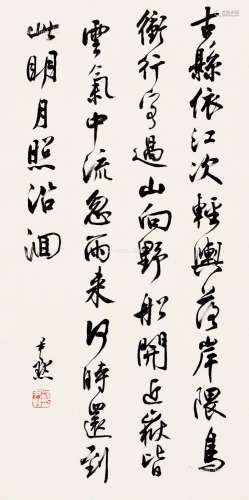 古縣依江次輕輿落岸隈鳥
銜行客過山向野船開近嶽皆
雲氣中流忽雨来何時還到
此明月照沿洄
尹默